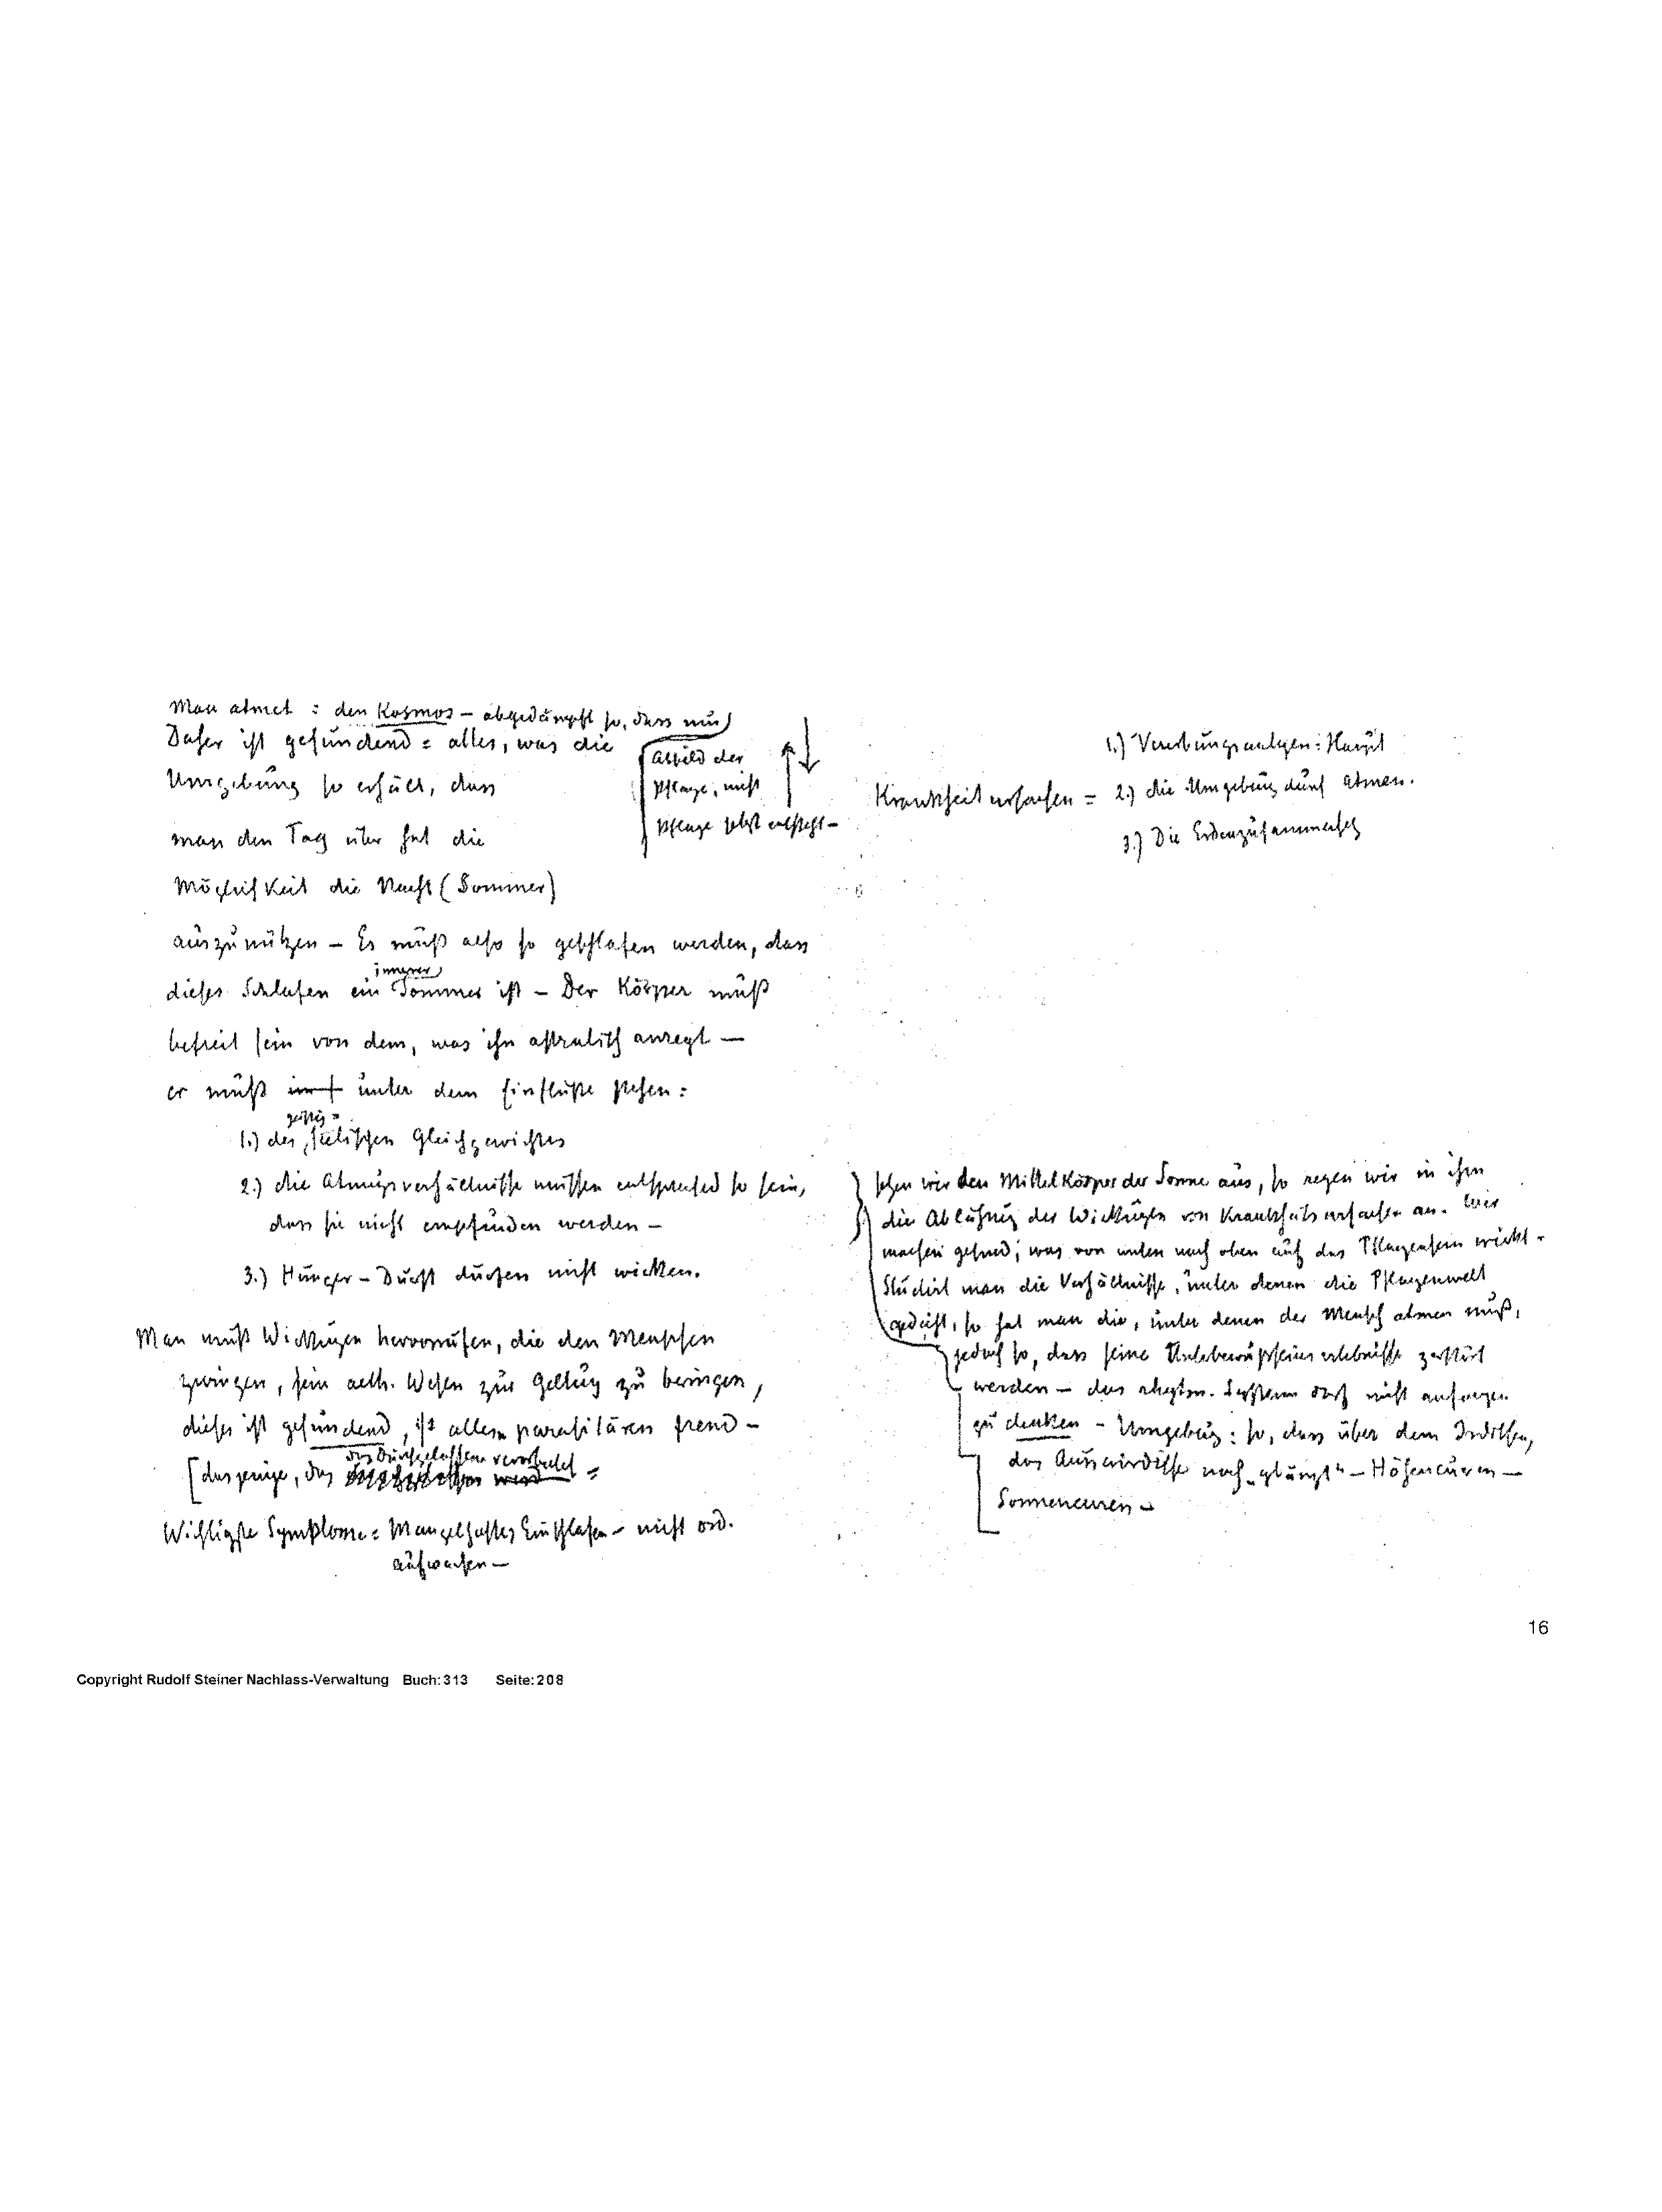 Man atmet : den Kosmos – abgedämpft so, dass nur
Abbild der
Pflanze, nicht
Pflanze selbst entsteht –
Daher ist gesundend = alles, was die
Umgebung so erhält, dass
man den Tag über hat die
Möglichkeit die Nacht (Sommer)
auszunützen – Es muß also so geschlafen werden, dass
dieses Schlafen ein innerer Sommer ist – Der Körper muß
befreit sein von dem, was ihn astralisch anregt –
er muß unter dem Einfluße stehen :
1.) des geistig = seelischen Gleichgewichtes
2.) die Atmungsverhältnisse müssen entsprechend so sein,
dass sie nicht empfunden werden –
3.) Hunger – Durst dürfen nicht wirken.
Man muß Wirkungen hervorrufen, die den Menschen
zwingen, sein aeth. Wesen zur Geltung zu bringen,
dieses ist gesundend, ist allem parasitären fremd –
[dasjenige, das das Durchgelassene verarbeitet =
Wichtigste Symptome = Mangelhaftes Einschlafen – nicht ord.
aufwachen –
1.) Vererbungsanlagen : Haupt
Krankheitursachen = 2.) die Umgebung durch atmen.
3.) Die Erdenzusammenhg
setzen wir den Mittelkörper der Sonne aus, so regen wir in ihm
die Ablähmung der Wirkungen von Krankheitsursachen an. Wir
machen gesund, was von unten nach oben auf das Pflanzensein wirkt –
Studirt man die Verhältnisse, unter denen die Pflanzenwelt
gedeiht, so hat man die, unter denen der Mensch atmen muß,
jedoch so, dass seine Unterbewußtseinserlebnisse zerstört
werden – das rhythm. System darf nicht anfangen
zu denken – Umgebung : so, dass über dem Irdischen,
das Ausserirdische noch „glänzt“ – Höhencuren –
Sonnencuren –
16
Copyright Rudolf Steiner Nachlass-Verwaltung Buch:313 Seite:208